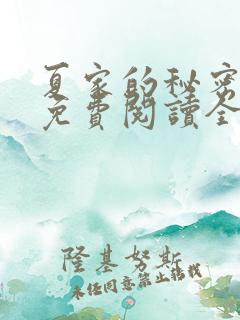 夏家的秘密
免費閱讀全
隆基努斯
未經同意禁止轉載